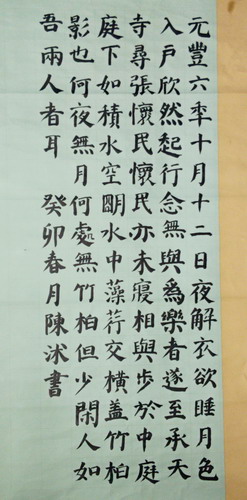 元豐六秊十月十二日夜解衣欲睡月色
入戶欣然起行念無與爲樂者遂至承天
寺尋張懷民懷民亦未寢相與步於中庭
庭下如積水空朙水中藻荇交橫蓋竹柏
影也何夜無月何處無竹柏但少閑人如
吾兩人者耳 癸卯春月陳沭書